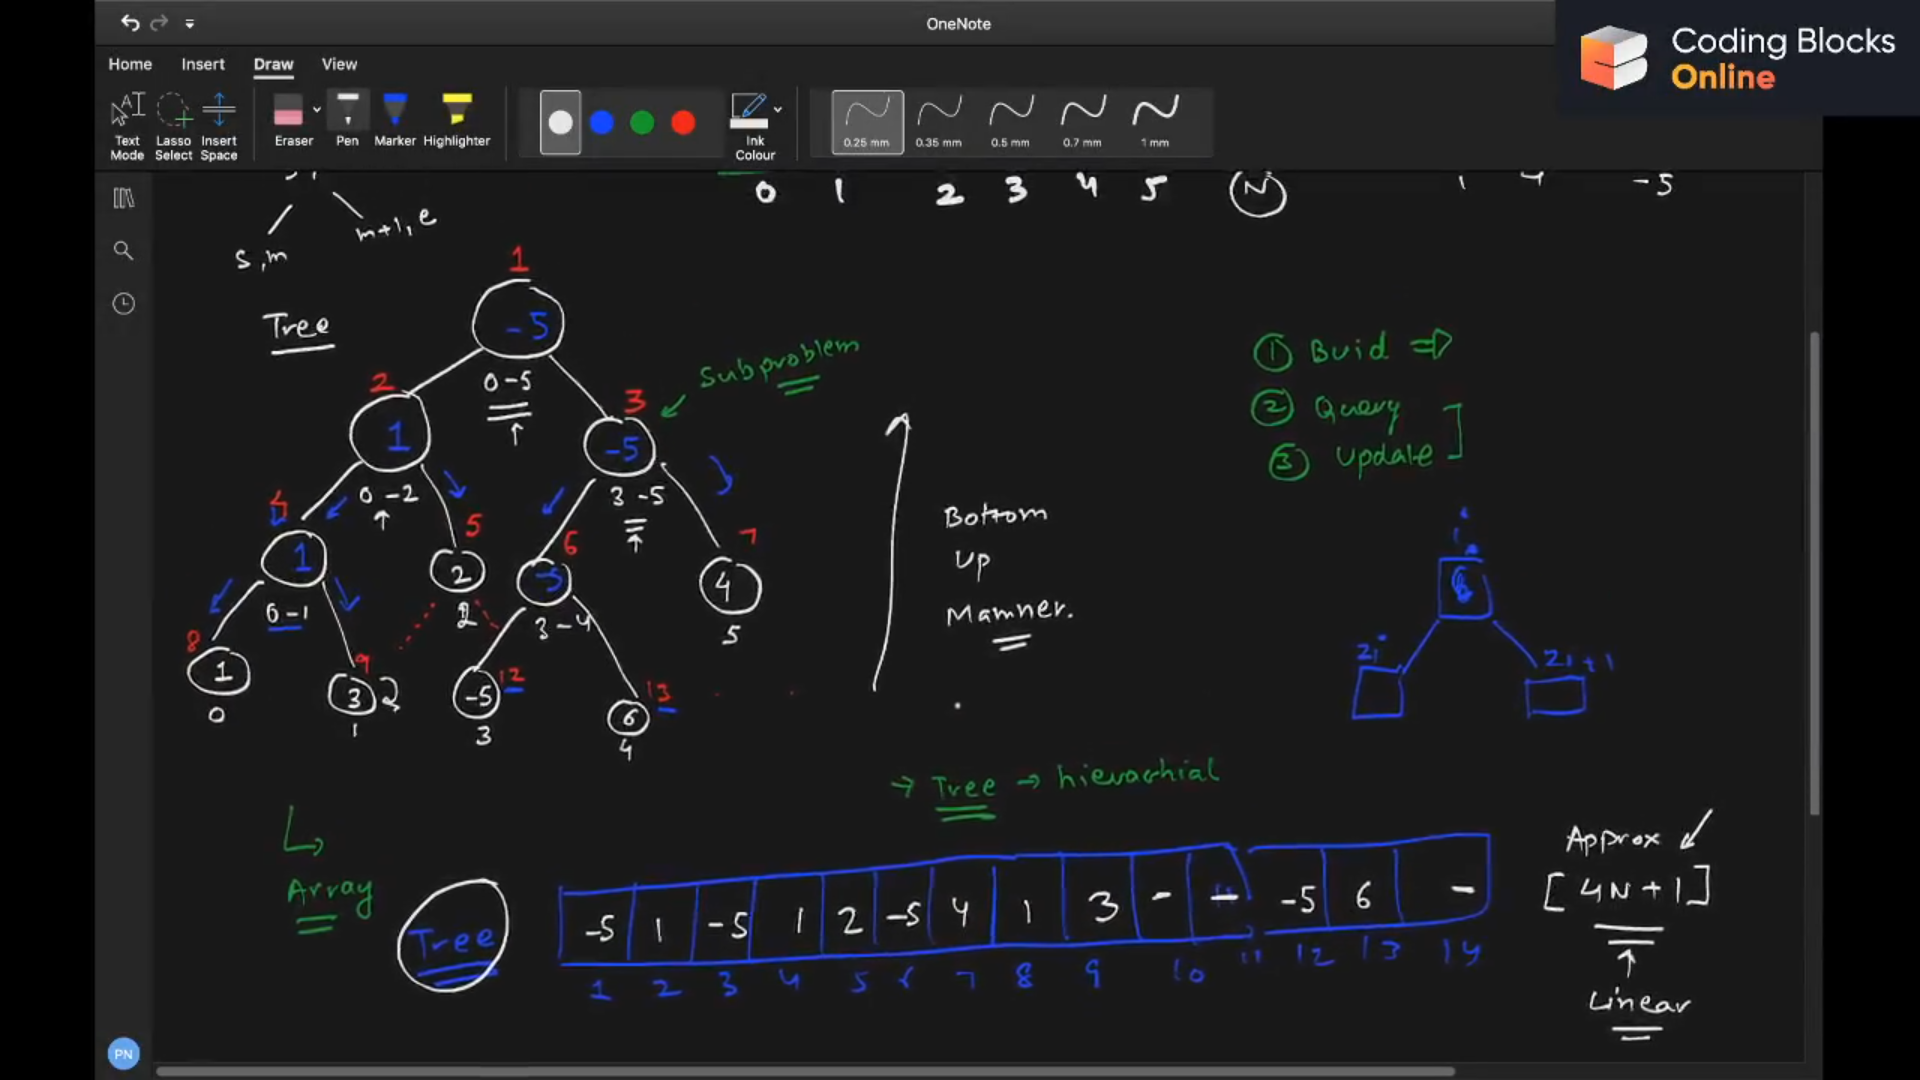 OneNote
Coding Blocks
Online
Home Insert Draw View
Text Mode
Lasso Select
Insert Space
Eraser
Pen
Marker
Highlighter
Ink Colour
0.25 mm
0.35 mm
0.5 mm
0.7 mm
1 mm
0 1 2 3 4 5 N
1 4 -5
s,m m+1, e
Tree
1
-5
0-5
Subproblem
2
1
0-2
3
-5
3-5
4
1
0-1
5
2
2
6
-5
3-4
7
4
5
8
1
0
9
3 2
1
12
-5
3
13
6
4
Bottom
Up
Manner.
1 Buid ⇒
2 Query
3 Update
i
6
2i 2i+1
→ Tree → hierachial
Array
Tree
-5 1 -5 1 2 -5 4 1 3 - - -5 6 -
1 2 3 4 5 6 7 8 9 10 11 12 13 14
Approx
[4N+1]
Linear
PN